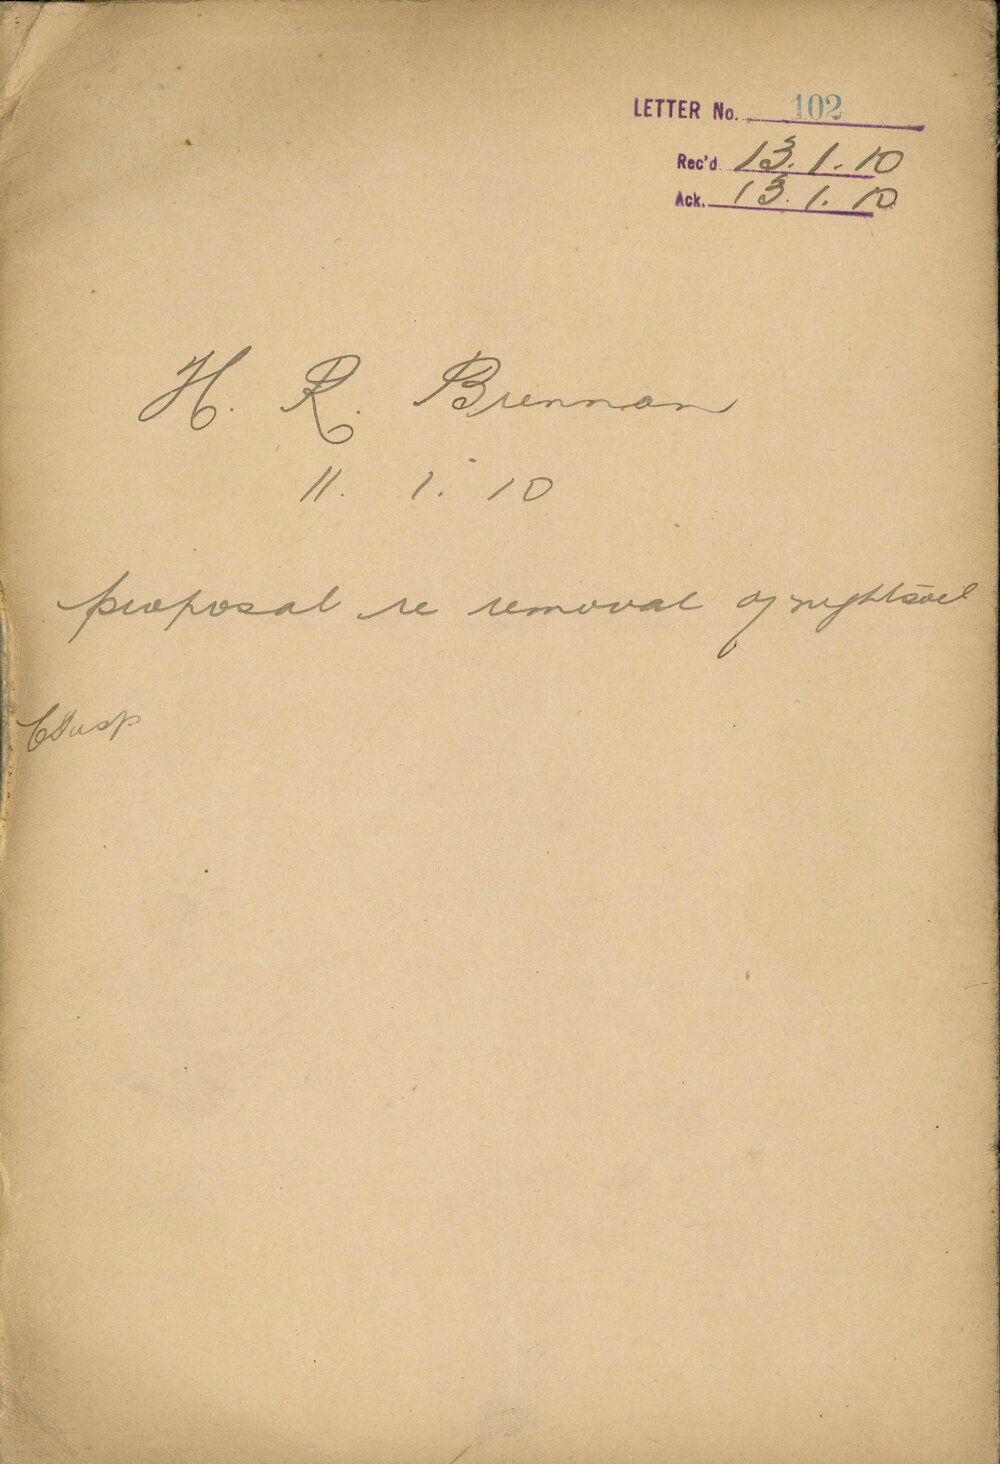 LETTER No. 102
Rec'd 13.1.10
Ack. 13.1.10
H. R. Brennan
11. 1. 10
proposal re removal of nightsoil